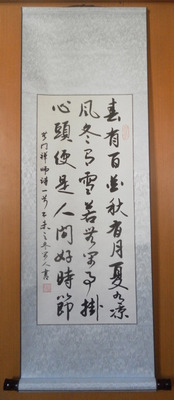 春有百花秋有月夏有凉
風冬有雪若無閑事掛
心頭便是人間好時節
無門禪師詩一首